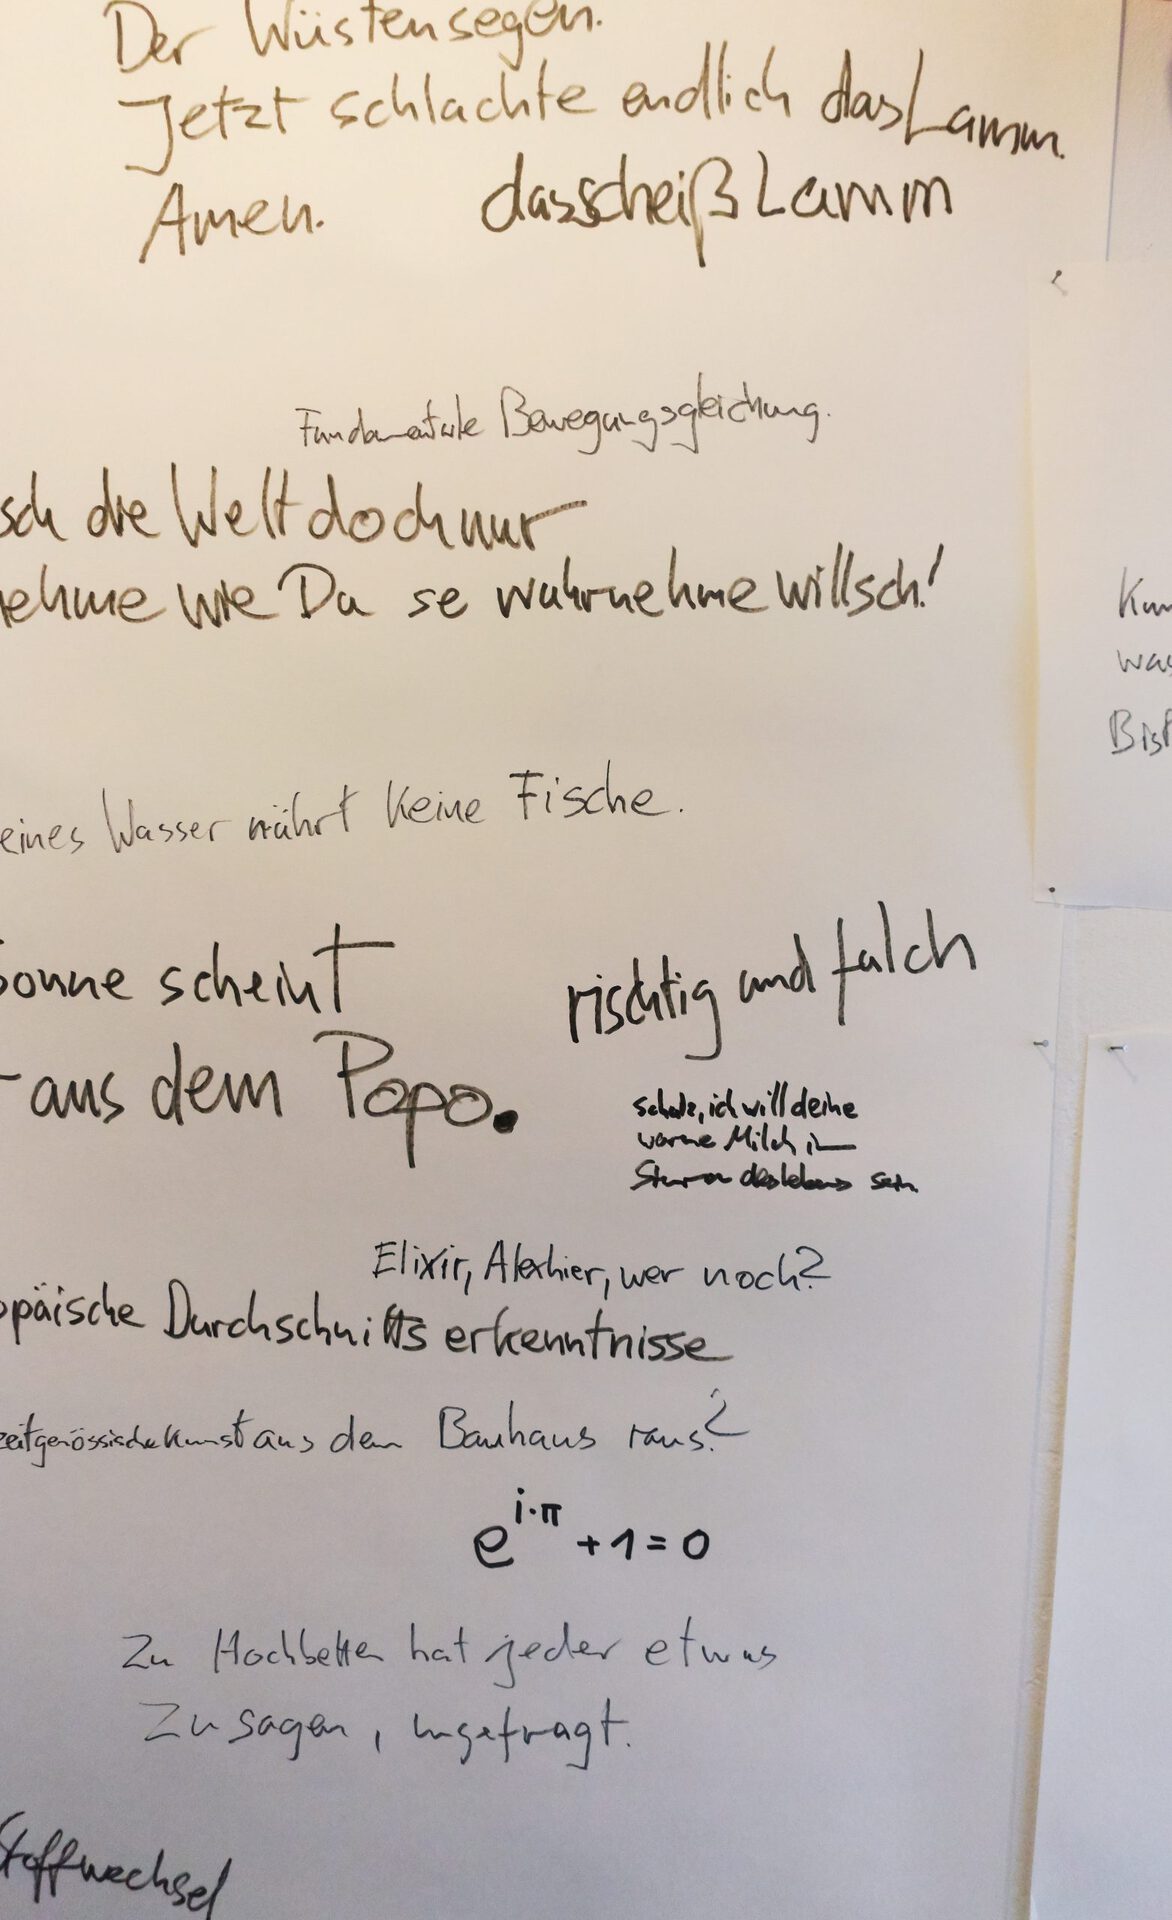 Der Wüstensegen.
Jetzt schlachte endlich das Lamm.
Amen. das scheiß Lamm
Fundamentale Bewegungsgleichung.
sch die Welt doch nur
nehme wie Da se wahrnehme willsch!
Kun
was
Bist
eines Wasser nährt keine Fische.
Sonne scheint
richtig und falch
aus dem Popo.
Schatz, ich will deine
warme Milch im
Sturm des Lebens sein.
Elixir, Alexhier, wer noch?
opäische Durchschnittserkenntnisse
zeitgenössische Kunst aus dem Bauhaus raus?
e^{i·π} + 1 = 0
Zu Hochbetten hat jeder etwas
zu sagen, ungefragt.
Stoffwechsel